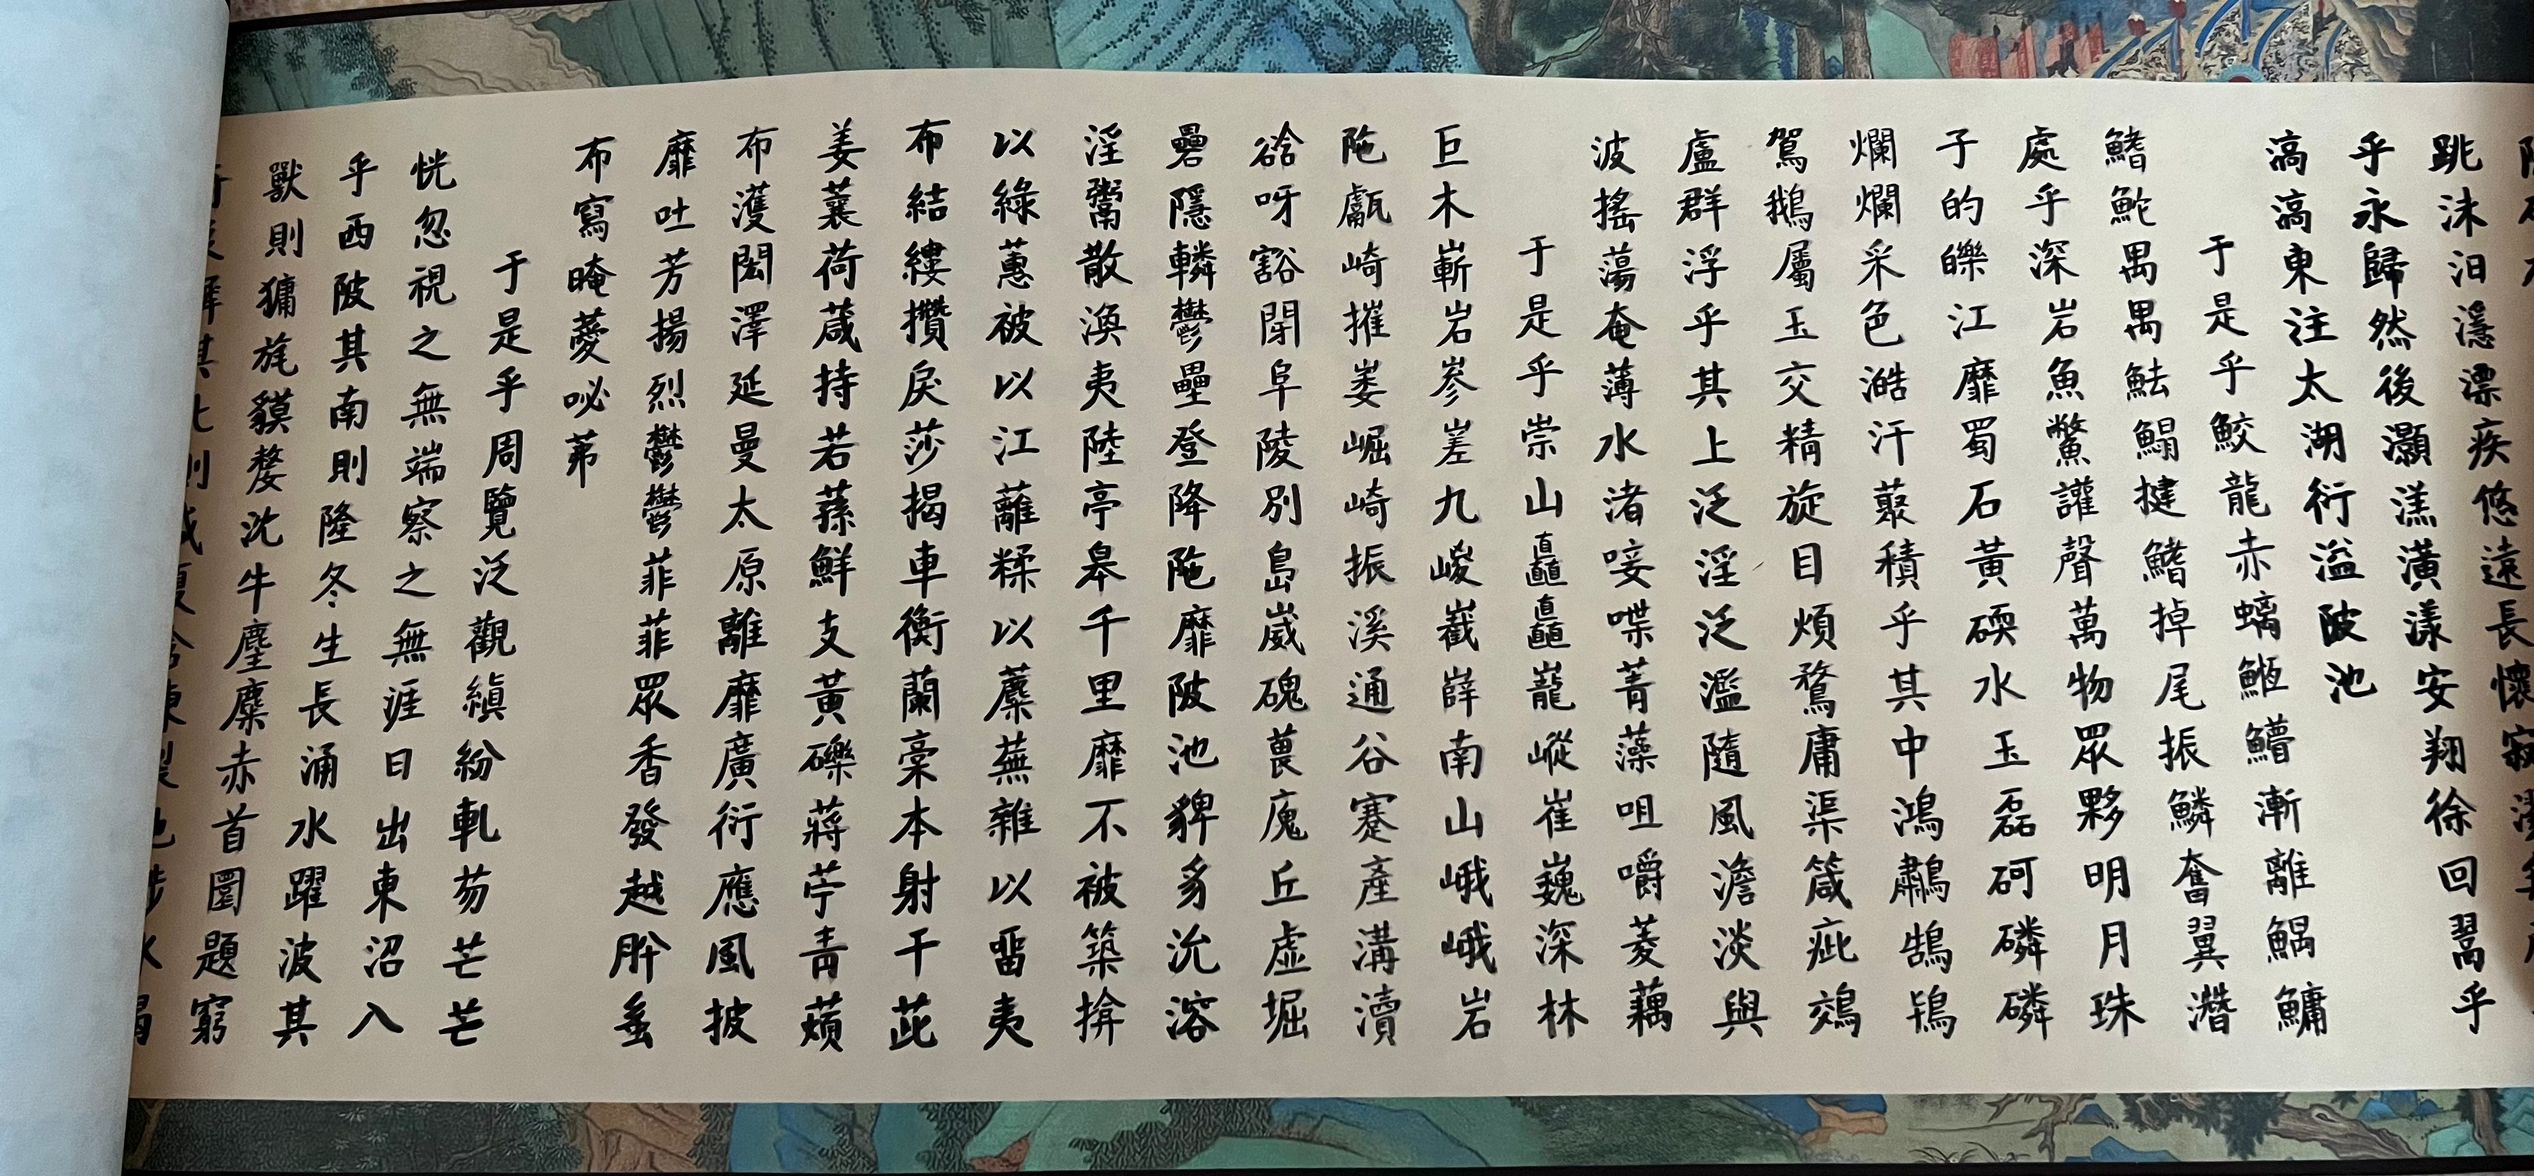 跳沫汩濦漂疾悠遠長懷寂
乎永歸然後灝溔潢漾安翔徐回翯乎
滈滈東注太湖衍溢陂池
于是乎鮫龍赤螭䱍䲛漸離鰅鱅
鰭鮀禺禺魼鰨揵鰭掉尾振鱗奮翼潛
處乎深岩魚鱉讙聲萬物眾夥明月珠
子的皪江靡蜀石黃碝水玉磊砢磷磷
爛爛采色澔汗藂積乎其中鴻鷫鵠鴇
鴐鵝屬玉交精旋目煩鶩庸渠箴疵鵁
盧群浮乎其上泛淫泛濫隨風澹淡與
波搖蕩奄薄水渚唼喋菁藻咀嚼菱藕
于是乎崇山矗矗巃嵷崔巍深林
巨木嶄岩參差九嵕巀嶭南山峨峨岩
陁甗崎摧崣崛崎振溪通谷蹇產溝瀆
谽呀豁閕阜陵別島崴磈嵔廆丘虛堀
礨隱轔鬱壘登降陁靡陂池貏豸沇溶
淫鬻散渙夷陸亭皋千里靡不被築揜
以綠蕙被以江蘺糅以蘪蕪雜以留夷
布結縷攢戾莎揭車衡蘭槀本射干茈
姜蘘荷葴持若蓀鮮支黃礫蔣苧青薠
布濩閎澤延曼太原離靡廣衍應風披
靡吐芳揚烈鬱鬱菲菲眾香發越肸蠁
布寫晻薆咇茀
于是乎周覽泛觀縝紛軋芴芒芒
恍忽視之無端察之無涯日出東沼入
乎西陂其南則隆冬生長涌水躍波其
獸則㺎旄貘嫠沈牛麈麋赤首圜題窮